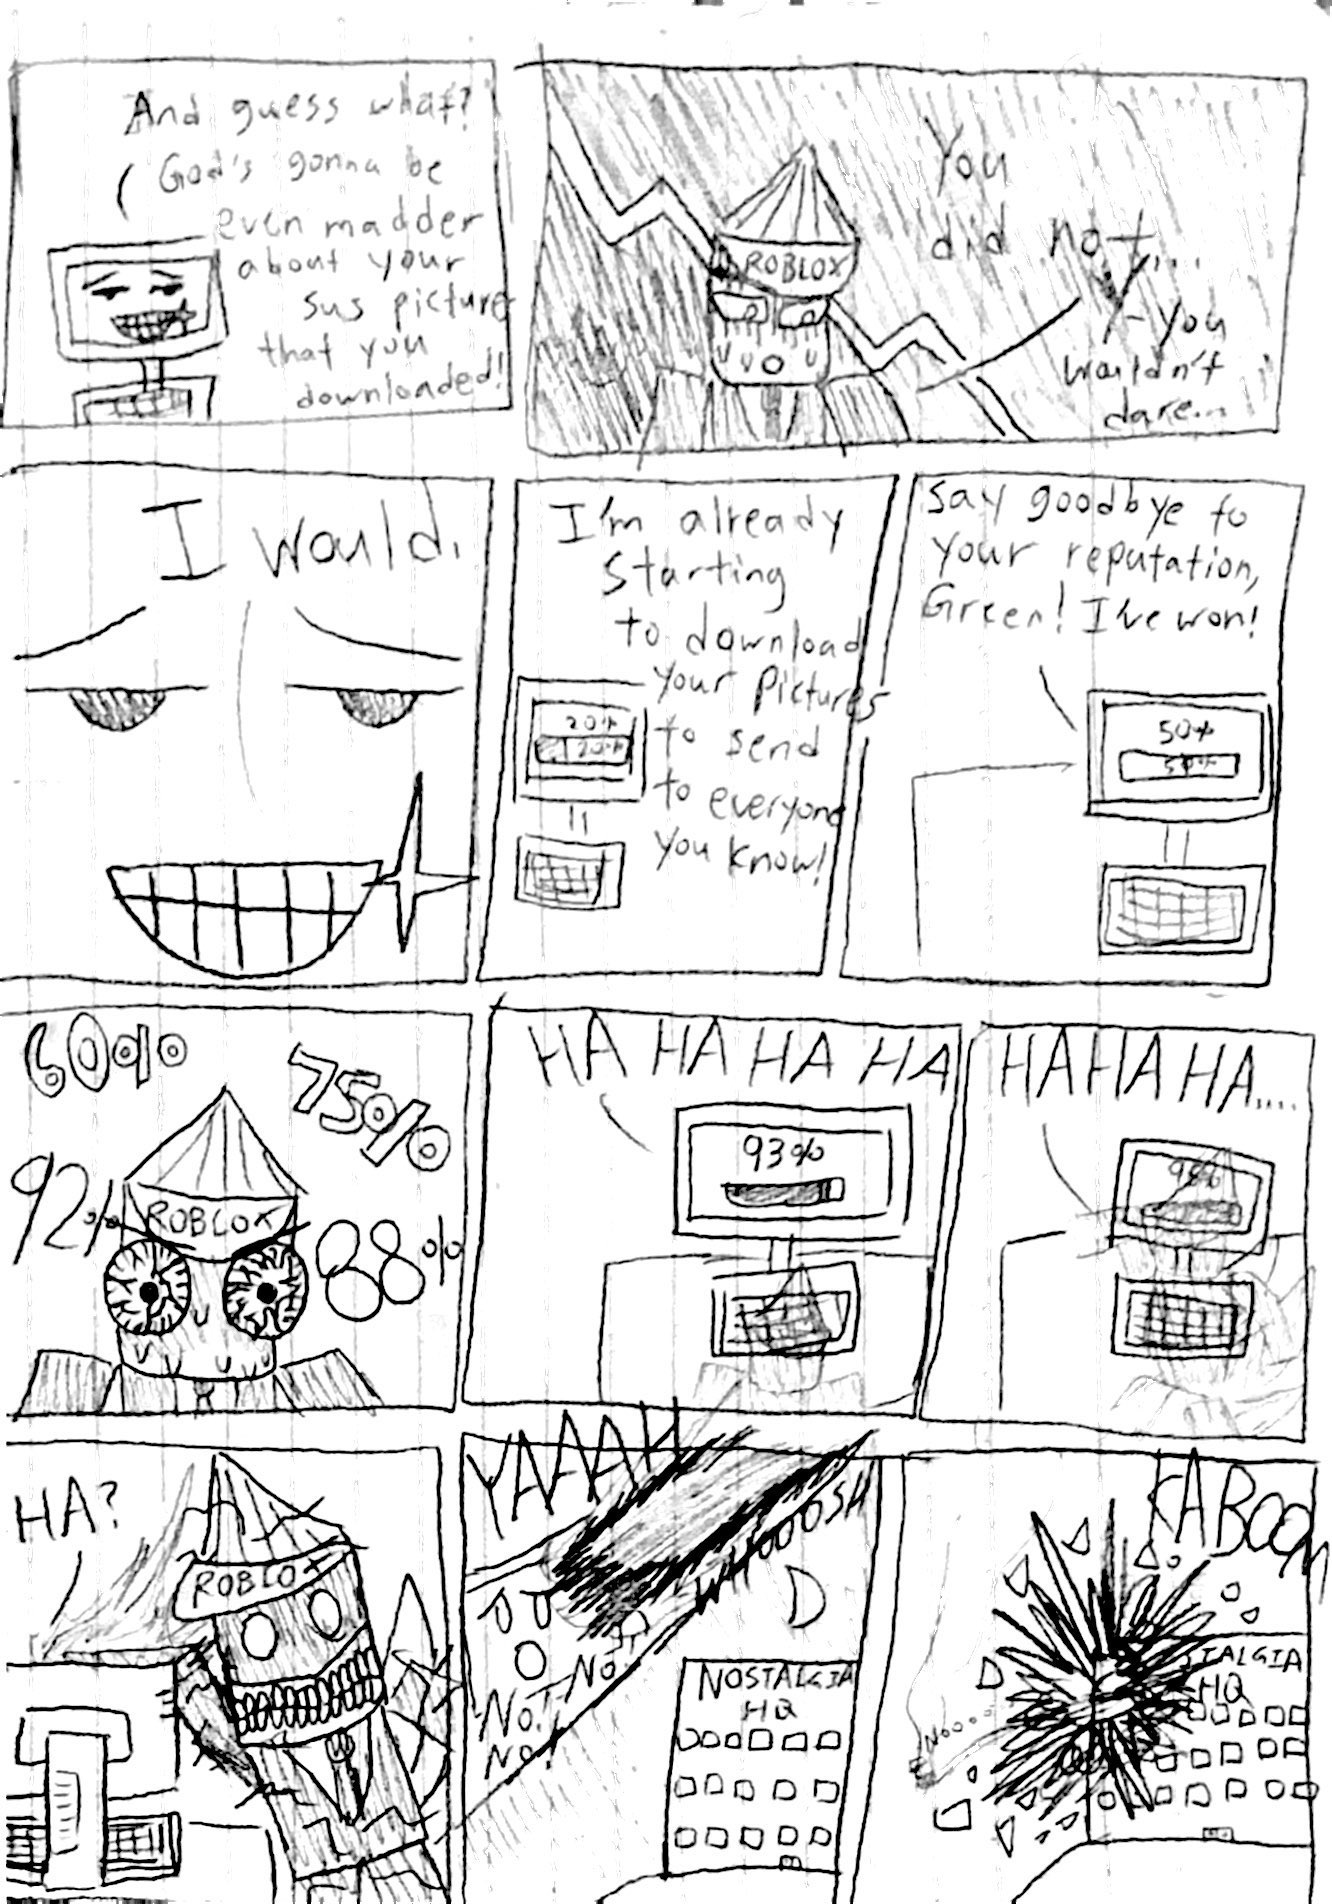 And guess what?
God's gonna be
even madder
about your
sus pictures
that you
downloaded!
You
did not...
ROBLOX
Y-you
wouldn't
dare...
I would.
I'm already
starting
to download
your pictures
to send
to everyone
you know!
20%
20%
Say goodbye to
your reputation,
Green! I've won!
50%
50%
60%
75%
92%
ROBLOX
88%
HA HA HA HA
93%
HA HA HA....
98%
HA?
ROBLOX
YAAAH
WHOOOSH
No!
No!
No!
NOSTALGIA
HQ
KABOOM
TALGIA
HQ
Noooo